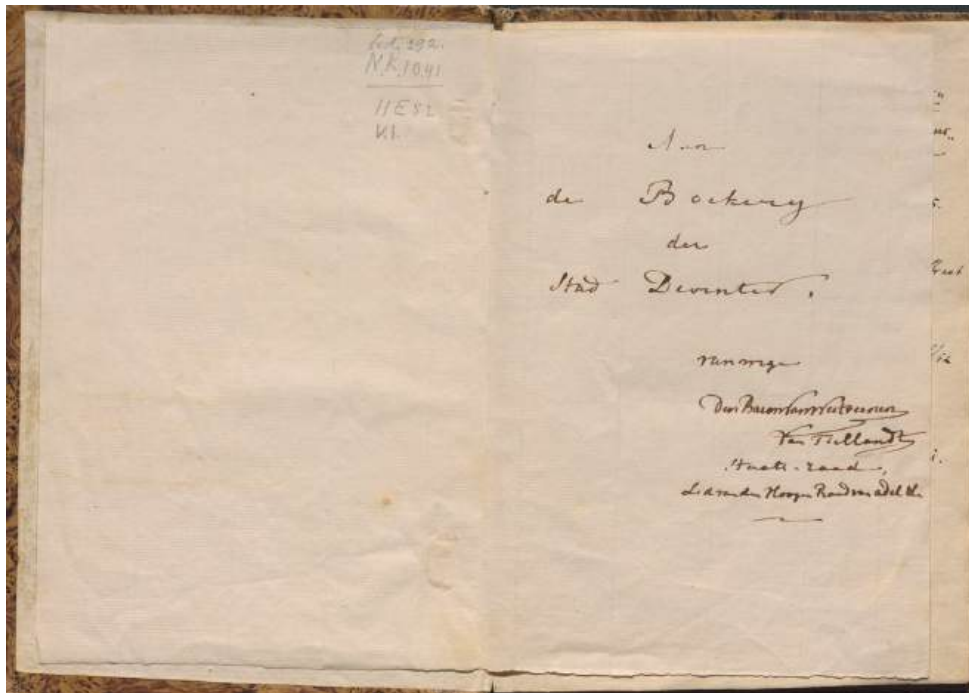 Cod. 292.
N.K. 1041
11 E 52
K.1.
Aan
de Boekery
der
Stad Deventer.
van wege
Den Baron van Westreenen
Van Tiellandt
Staats-raad,
Lid van den Hoogen Raad van adel &c.